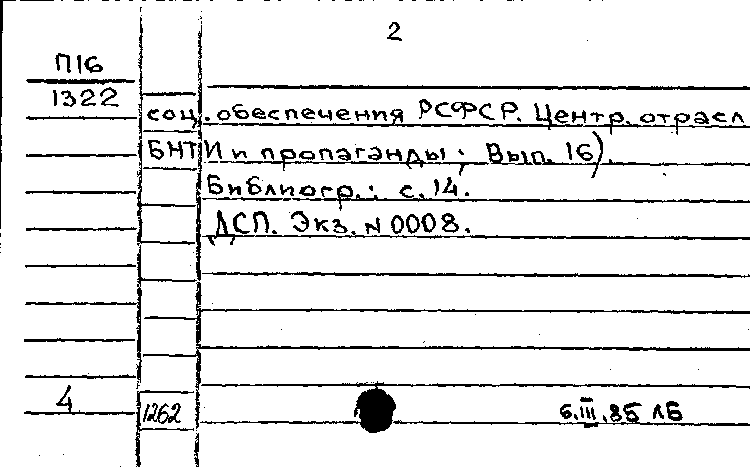 2
П16
1322
соц. обеспечения РСФСР. Центр. отрасл
БНТИ и пропаганды; Вып. 16).
Библиогр.: с. 14.
ДСП. Экз. N 0008.
4
1262
6.III.85 ЛБ